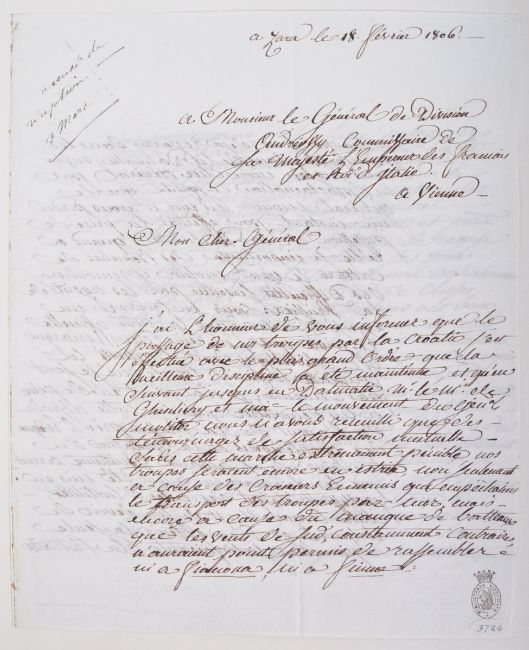 a Zara le 18 février 1806.
accusé de
réception
Mars
a Monsieur le Général de Division
Andréossy Commissaire de
Sa Majesté L'Empereur des français
et Roi d'Italie
a Vienne
Mon cher Général
j'ai L'honneur de vous informer que le
passage de nos troupes par la Croatie s'est
effectué avec le plus grand Ordre que la
meilleure discipline a été maintenue et qu'en
suivant jusques en Dalmatie
et moi le mouvement
nous n'avons recueilli que des
témoignages de satisfaction mutuelle
Sans cette marche extremement pénible nos
troupes seraient encore en istrie non seulement
a cause des Croisiers Ennemis qui empêchaient
le transport des troupes par mer mais
encore a cause du manque de batteaux
que les vents de Sud constamment contraires
n'auraient point permis de rassembler
ni a ni a fiume.
3724